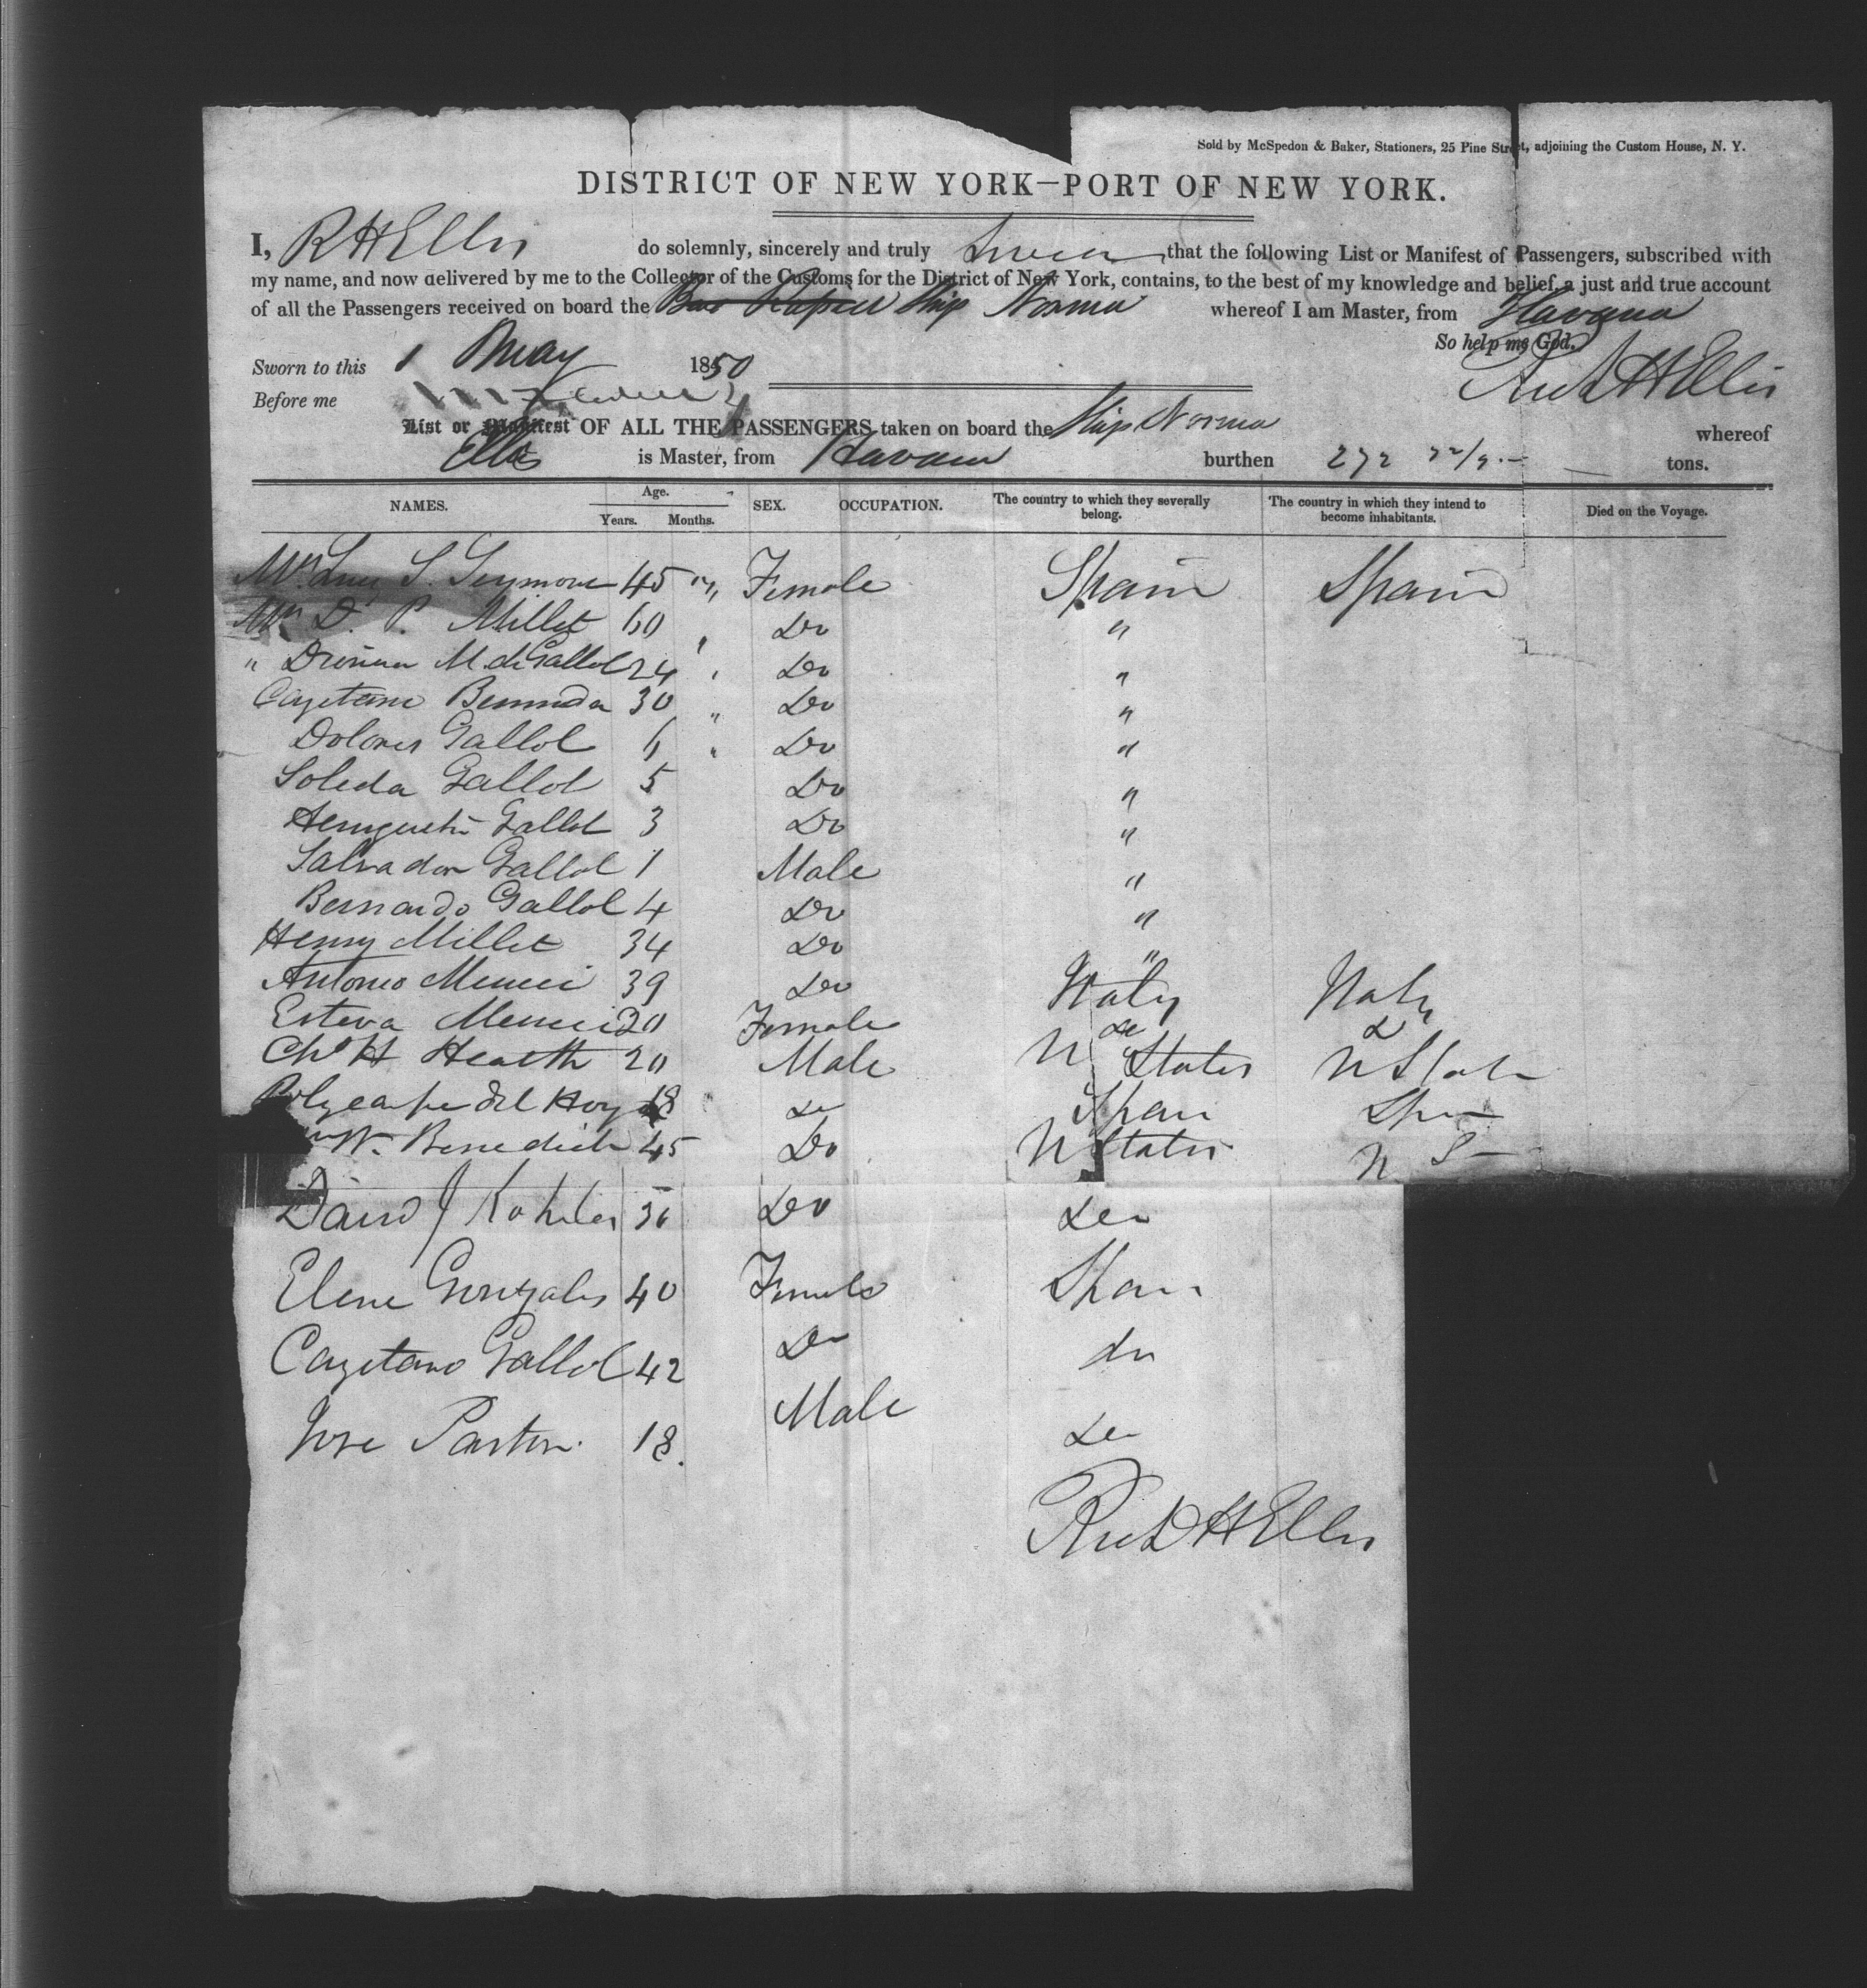 Sold by McSpedon & Baker, Stationers, 25 Pine Street, adjoining the Custom House, N. Y.
DISTRICT OF NEW YORK—PORT OF NEW YORK.
I, R H Ellis do solemnly, sincerely and truly swear that the following List or Manifest of Passengers, subscribed with
my name, and now delivered by me to the Collector of the Customs for the District of New York, contains, to the best of my knowledge and belief, a just and true account
of all the Passengers received on board the Ship Norma whereof I am Master, from Havana
So help me God.
Sworn to this 1 May 1850
Richd H Ellis
Before me
List or Manifest OF ALL THE PASSENGERS taken on board the Ship Norma whereof
Ellis is Master, from Havana burthen 272 tons.
NAMES. Age. Years. Months. SEX. OCCUPATION. The country to which they severally belong. The country in which they intend to become inhabitants. Died on the Voyage.
Mrs Lucy S. Seymore 45 " Female Spain Spain
Mrs D. P. Millet 60 Do "
" M. de Gallol 24 Do "
Cayetano 30 " Do "
Dolores Gallol 6 " Do "
Soleda Gallol 5 Do "
Gallol 3 Do "
Salvador Gallol 1 Male "
Bernardo Gallol 4 Do "
Henry Millet 34 Do "
Antonio Meucci 39 Do Italy Italy
Esteva Meucci 20 Female do do
Chs H Heath 20 Male U States U States
Polycarpe del Hoyo 18 Do Spain Spain
W. Benedict 45 Do U States U S
David J 36 Do Do
Elene Gonzales 40 Female Spain
Cayetano Gallol 42 Do do
Jose Pastor. 18. Male Do
Richd H Ellis